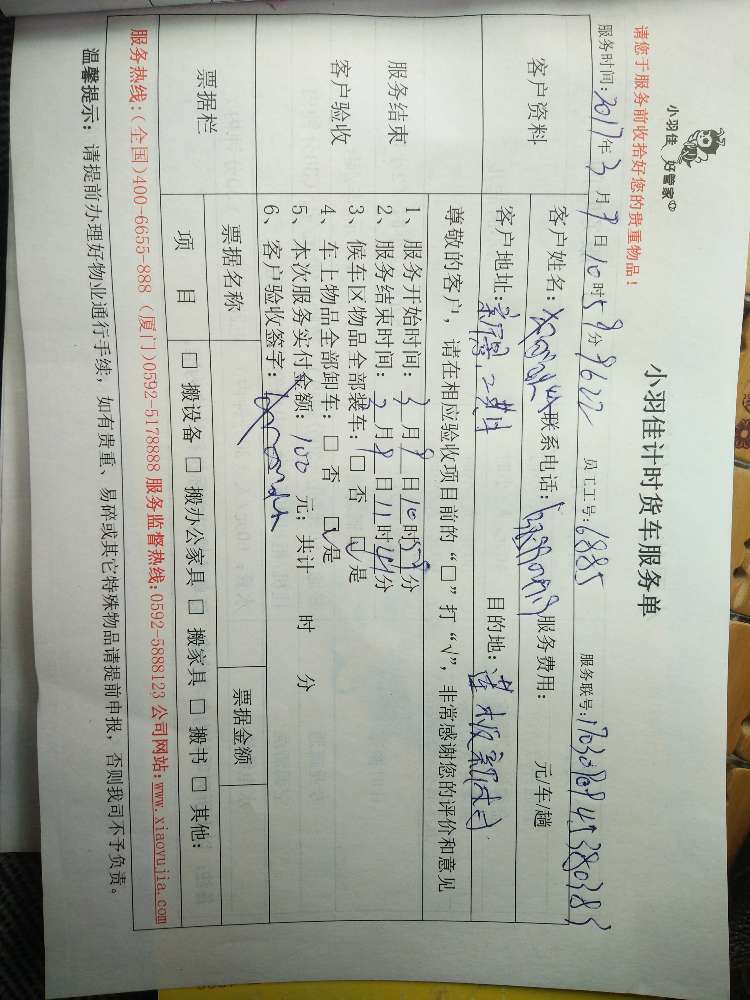 小羽佳 好管家
小羽佳计时货车服务单
请您于服务前收拾好您的贵重物品！
服务时间：2017年3月9日10时59分 9622 员工工号：6885 服务联号：
客户资料
客户姓名： 联系电话： 服务费用： 元/车/趟
客户地址： 目的地：
尊敬的客户，请在相应验收项目前的“□”打“√”，非常感谢您的评价和意见
服务结束
客户验收
1、服务开始时间：3月9日10时59分
2、服务结束时间：3月9日11时 分
3、候车区物品全部装车：□ 否 ☑是
4、车上物品全部卸车：□ 否 ☑是
5、本次服务实付金额：100 元；共计 时 分
6、客户验收签字：
票据栏
票据名称 票据金额
项 目 □ 搬设备 □ 搬办公家具 □ 搬家具 □ 搬书 □ 其他：
服务热线：(全国)400-6655-888 (厦门)0592-5178888 服务监督热线:0592-5888123 公司网站:www.xiaoyujia.com
温馨提示：请提前办理好物业通行手续，如有贵重、易碎或其它特殊物品请提前申报，否则我司不予负责。